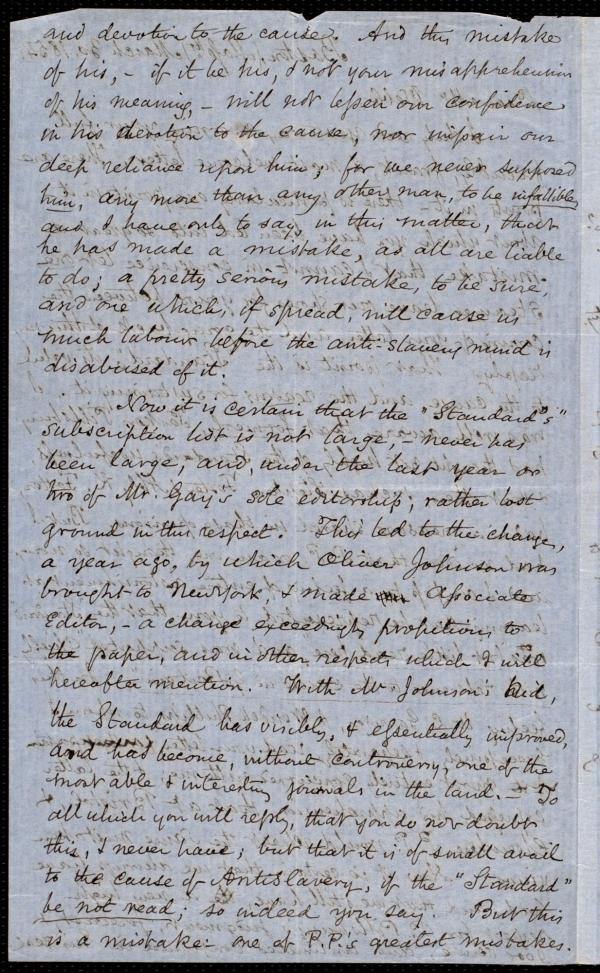 and devotion to the cause. And this mistake
of his, - if it be his, & not your misapprehension
of his meaning, - will not lessen our confidence
in his devotion to the cause, nor impair our
deep reliance upon him; for we never supposed
him, any more than any other man, to be infallible,
and I have only to say, in this matter, that
he has made a mistake, as all are liable
to do; a pretty serious mistake, to be sure,
and one which, if spread, will cause us
much labour before the anti-slavery mind is
disabused of it.
Now it is certain that the "Standard's"
subscription list is not large, - never has
been large, and, under the last year or
two of Mr. Gay's sole editorship, rather lost
ground in this respect. This led to the change,
a year ago, by which Oliver Johnson was
brought to New York, & made Associate
Editor, - a change exceedingly propitious to
the paper, and in other respects which I will
hereafter mention. With Mr Johnson's aid,
the Standard has visibly, & essentially improved,
and has become, without controversy, one of the
most able & interesting journals in the land. - To
all which you will reply, that you do not doubt
this, & never have; but that it is of small avail
to the cause of AntiSlavery, if the "Standard"
be not read; so indeed you say. But this
is a mistake:- one of P.P.'s greatest mistakes.